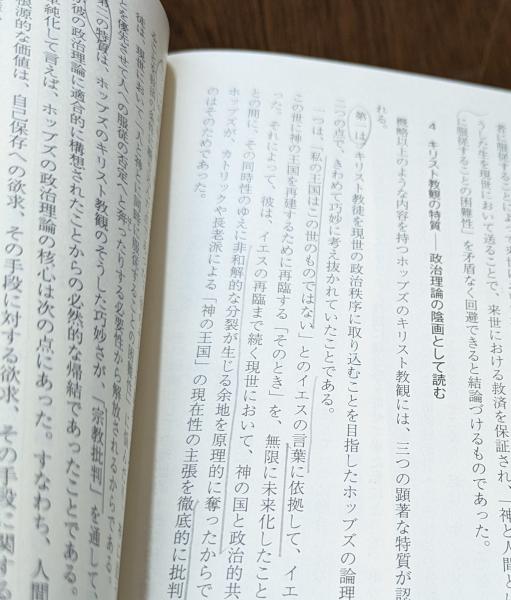 者に服従することの困難性」を矛盾なく回避できると結論づけるものであった。
うした生を現世において送ることで、来世における救済を保証され、「神と人間とに
4 キリスト教観の特質——政治理論の陰画として読む
概略以上のような内容を持つホッブズのキリスト教観には、三つの顕著な特質が認
れる。
第一は、キリスト教徒を現世の政治秩序に取り込むことを目指したホッブズの論理
二つの点で、きわめて巧妙に考え抜かれていたことである。
一つは、「私の王国はこの世のものではない」とのイエスの言葉に依拠して、イエ
この世に神の王国を再建するために再臨する「そのとき」を、無限に未来化したこと
った。それによって、彼は、イエスの再臨まで続く現世において、神の国と政治的共
との間に、その同時性のゆえに非和解的な分裂が生じる余地を原理的に奪ったからで
ホッブズが、カトリックや長老派による「神の王国」の現在性の主張を徹底的に批判
のはそのためであった。
徒は、現世において人と神とに同時に服従することの困難性に
とを優先させて人への服従の否定へと奔ったりする必要性から解放されるからである。
の特質は、ホッブズのキリスト教観のそうした巧妙さが、「宗教批判」を通して、
彼の政治理論に適合的に構想されたことからの必然的な帰結であったことである。
純化して言えば、ホッブズの政治理論の核心は次の点にあった。すなわち、人間
根源的な価値は、自己保存への欲求、その手段に対する欲求、その手段に関する